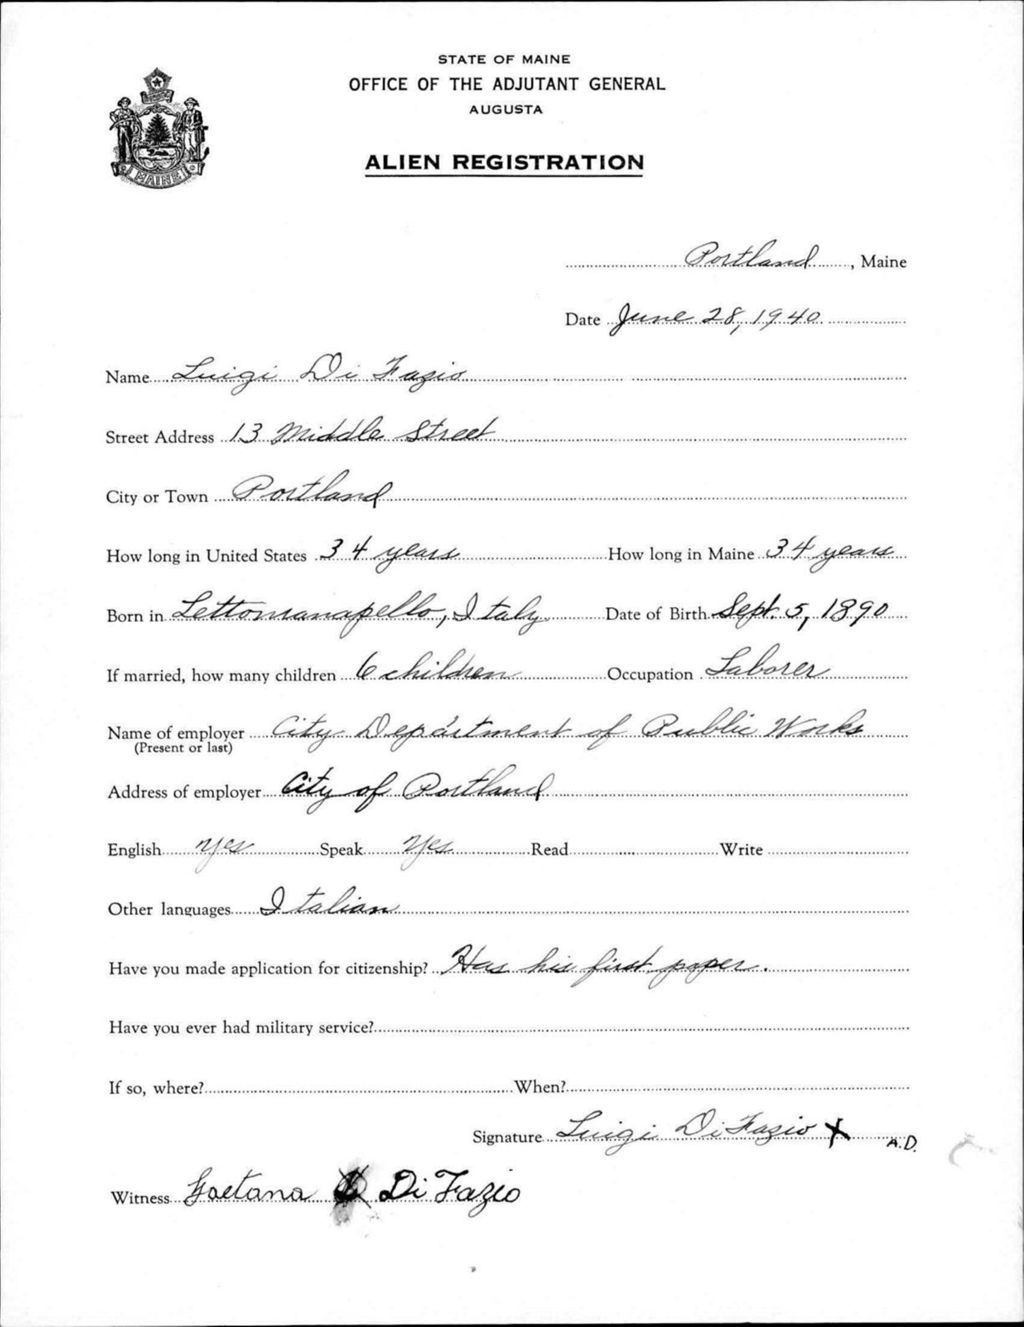 STATE OF MAINE
OFFICE OF THE ADJUTANT GENERAL
AUGUSTA
ALIEN REGISTRATION
MAINE
Portland, Maine
Date June 28, 1940
Name Luigi Di Fazio
Street Address 13 Middle Street
City or Town Portland
How long in United States 34 years How long in Maine 34 years
Born in Lettomanapello, Italy Date of Birth Sept. 5, 1890
If married, how many children 6 children Occupation Laborer
Name of employer City Department of Public Works
(Present or last)
Address of employer City of Portland
English Yes Speak Yes Read Write
Other languages Italian
Have you made application for citizenship? Has his first paper.
Have you ever had military service?
If so, where? When?
Signature Luigi Di Fazio X A.D.
Witness Gaetana Di Fazio